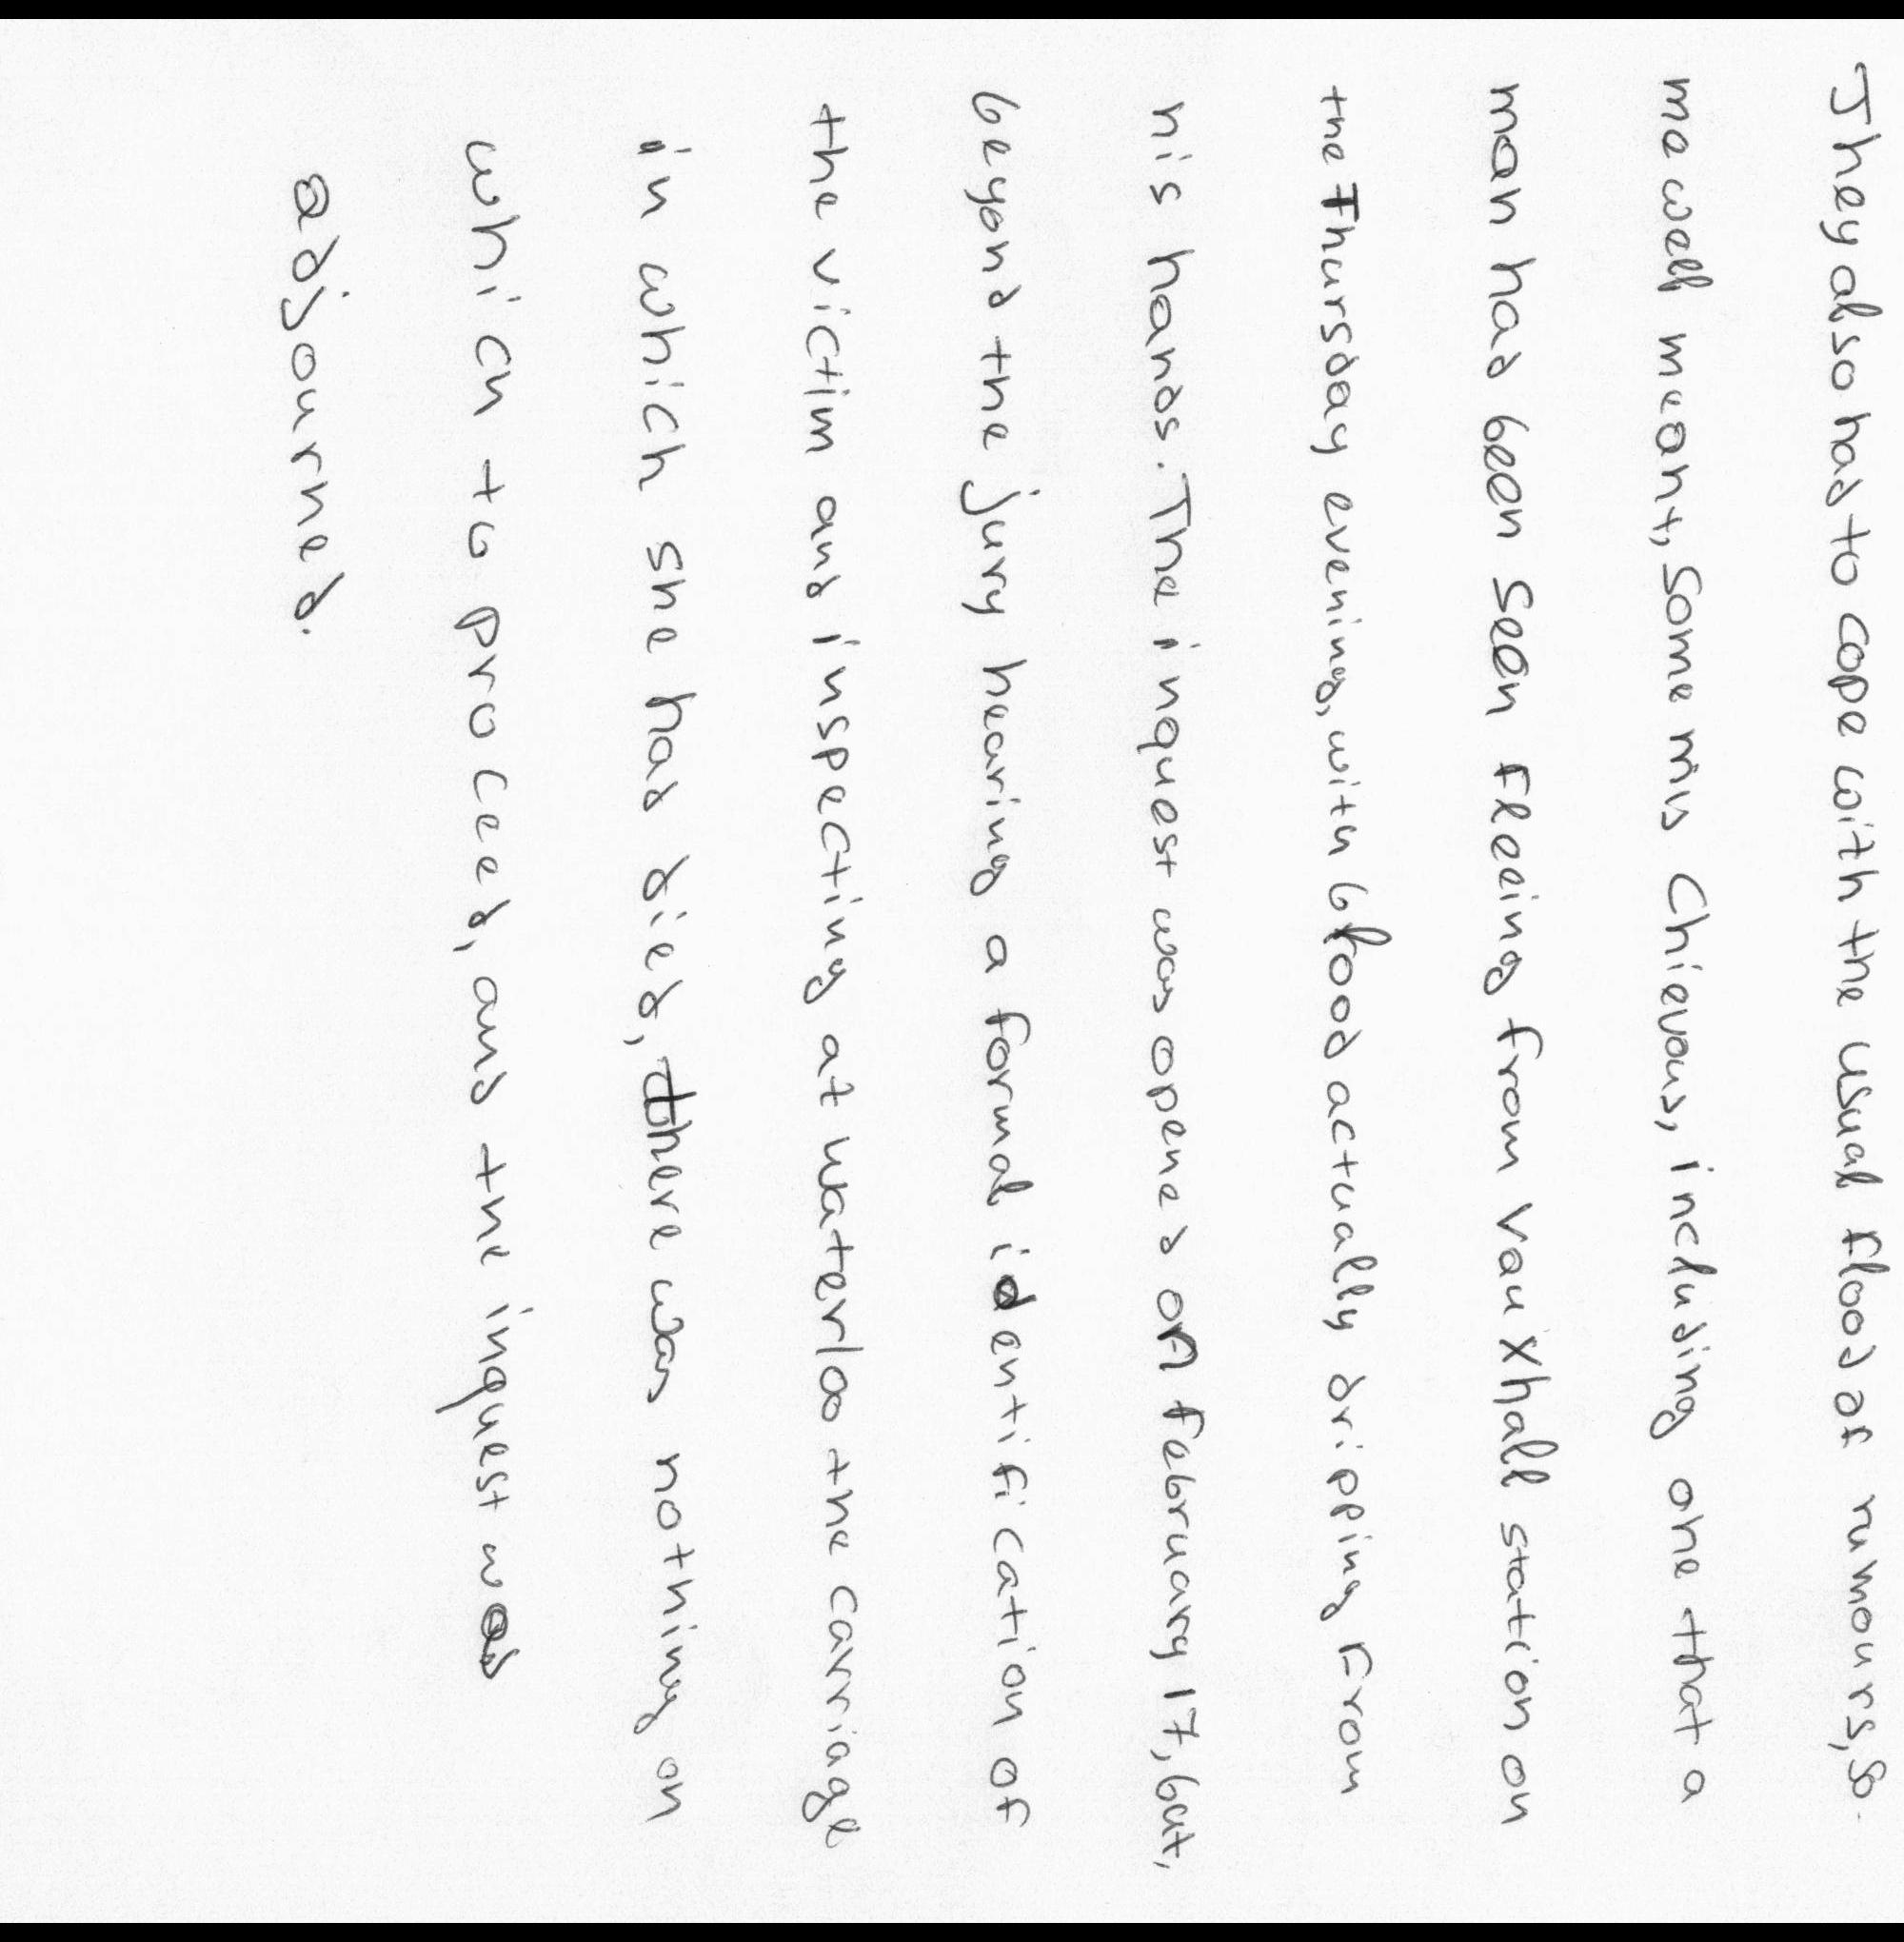 They also had to cope with the usual flood of rumours, so
me well meant, some mis chievous, including one that a
man had been seen fleeing from Vauxhall station on
the Thursday evening, with blood actually dripping from
his hands. The inquest was opened on February 17, but,
beyond the jury hearing a formal identification of
the victim and inspecting at waterloo the carriage
in which she had died, there was nothing on
which to proceed, and the inquest was
adjourned.